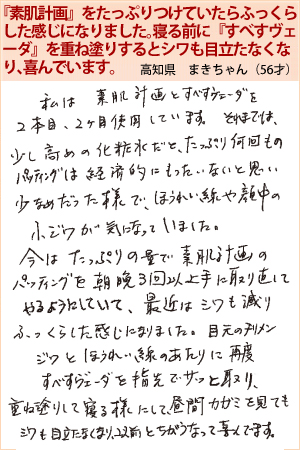 『素肌計画』をたっぷりつけていたらふっくら
した感じになりました。寝る前に『すべすヴェ
ーダ』を重ね塗りするとシワも目立たなくな
り、喜んでいます。 高知県 まきちゃん（56才）
私は 素肌計画とすべすヴェーダを
2本目、2ヶ月使用しています。それまでは、
少し高めの化粧水だと、たっぷり何回もの
パッティングは経済的にもったいないと思い
少なめだった様で、ほうれい線や顔中の
小ジワが気になっていました。
今は たっぷりの量で素肌計画の
パッティングを朝晩3回以上手に取り直して
やるようにしていて、最近はシワも減り
ふっくらした感じになりました。目元のチリメン
ジワとほうれい線のあたりに再度
すべすヴェーダを指先でサッと取り、
重ね塗りして寝る様にして、昼間カガミを見ても
シワも目立たなくなり、以前とちがうなって喜んでます。